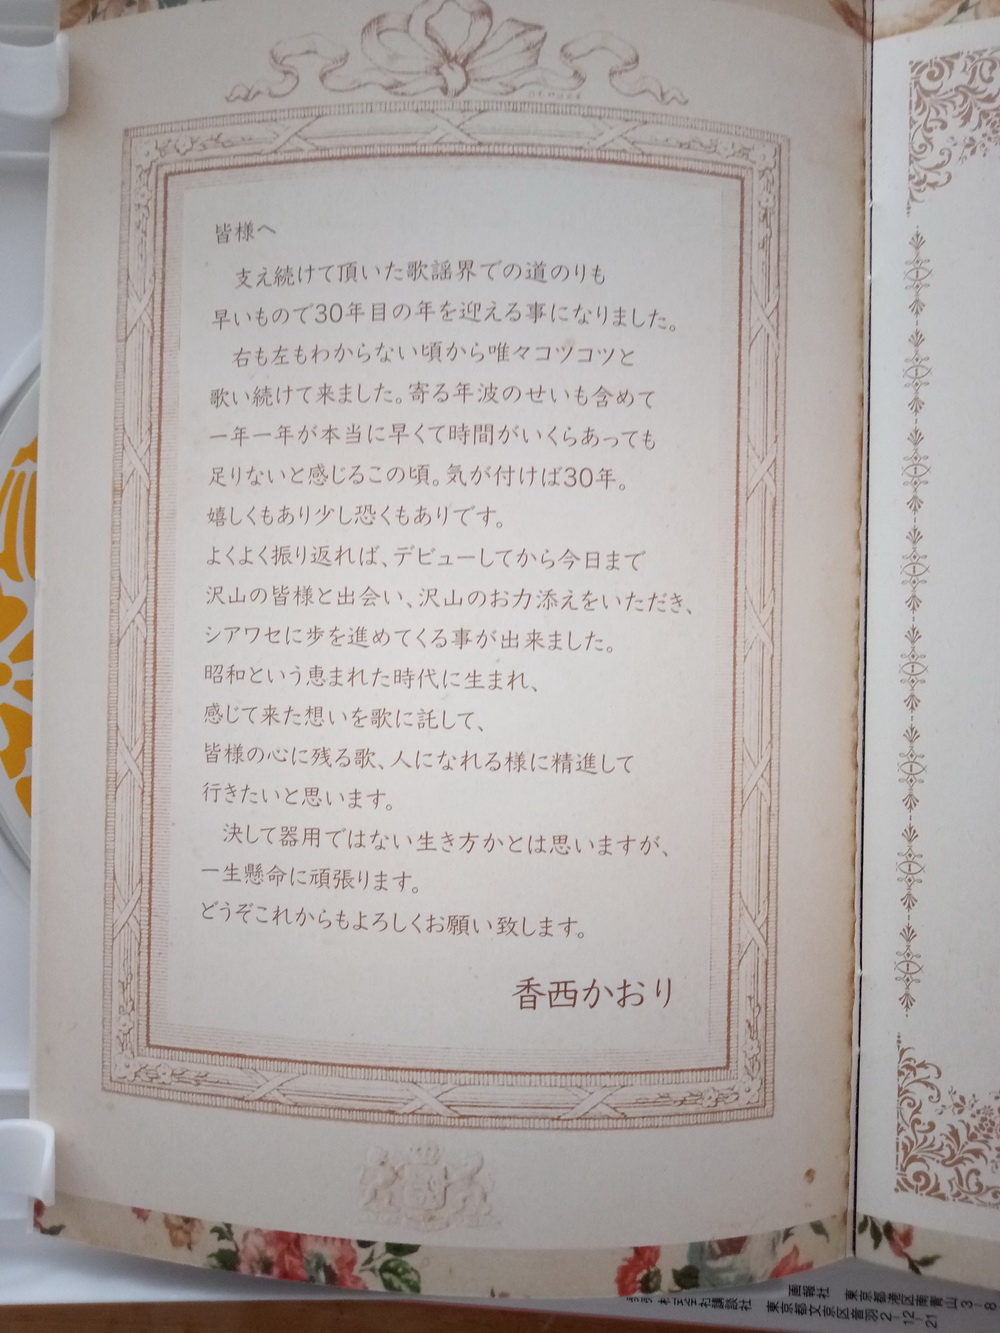 皆様へ
支え続けて頂いた歌謡界での道のりも
早いもので30年目の年を迎える事になりました。
右も左もわからない頃から唯々コツコツと
歌い続けて来ました。寄る年波のせいも含めて
一年一年が本当に早くて時間がいくらあっても
足りないと感じるこの頃。気が付けば30年。
嬉しくもあり少し恐くもありです。
よくよく振り返れば、デビューしてから今日まで
沢山の皆様と出会い、沢山のお力添えをいただき、
シアワセに歩を進めてくる事が出来ました。
昭和という恵まれた時代に生まれ、
感じて来た想いを歌に託して、
皆様の心に残る歌、人になれる様に精進して
行きたいと思います。
決して器用ではない生き方かとは思いますが、
一生懸命に頑張ります。
どうぞこれからもよろしくお願い致します。
香西かおり
画報社 東京都港区南青山3-8
講談社 東京都文京区音羽2-12-21